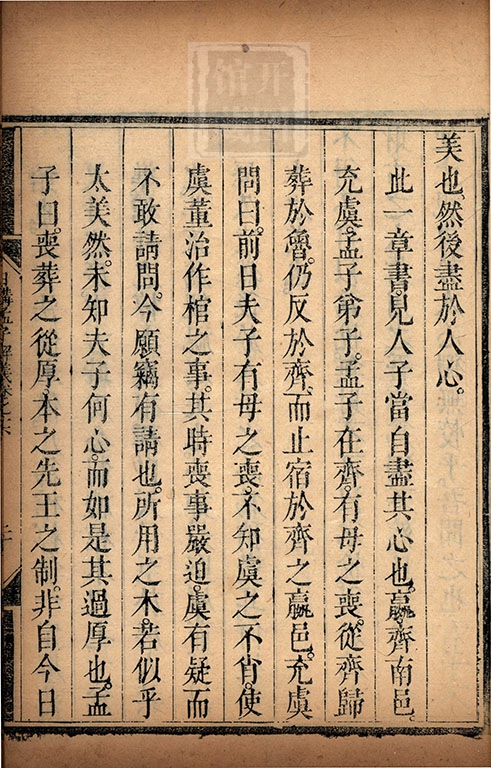 美也。然後盡於人心。
此一章書見人子當自盡其心也。嬴齊南邑。
充虞。孟子弟子。孟子在齊。有母之喪。從齊歸
葬於魯。仍反於齊。而止宿於齊之嬴邑。充虞
問曰。前日夫子有母之喪。不知虞之不肖。使
虞董治作棺之事。其時喪事嚴迫。虞有疑而
不敢請問。今願竊有請也。所用之木。若似乎
太美然。未知夫子何心。而如是其過厚也。孟
子曰。喪葬之從厚。本之先王之制。非自今日
日講孟子解義卷之六